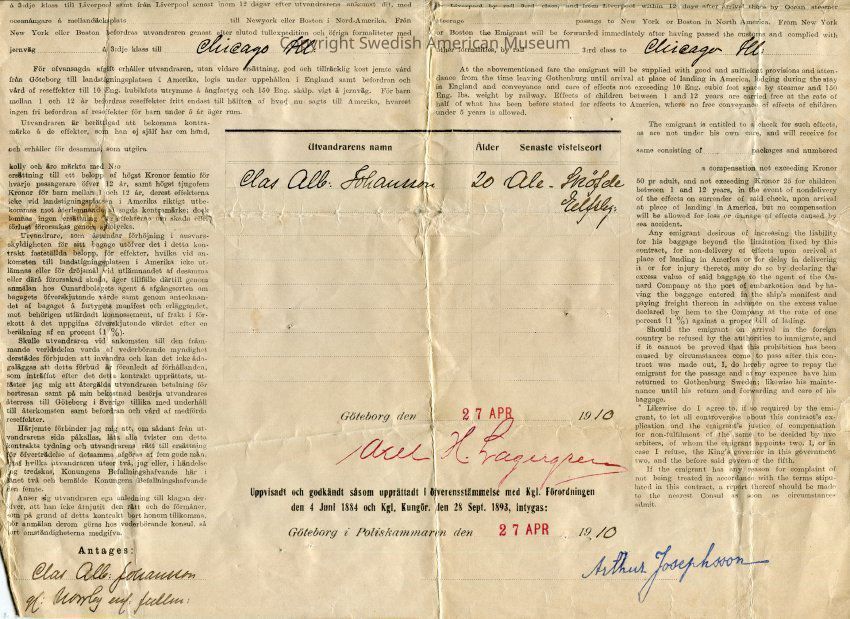 å 3dje klass till Liverpool samt från Liverpool senast inom 12 dagar efter utvandrarens ankomst dit, med
oceanångare å mellandäcksplats till Newyork eller Boston i Nord-Amerika. Från
New York eller Boston befordras utvandraren genast efter slutad tullexpedition och öfriga formaliteter med
jernväg å 3dje klass till Chicago Ill
För ofvansagda afgift erhåller utvandraren, utan vidare ersättning, god och tillräcklig kost jemte vård
från Göteborg till landstigningsplatsen i Amerika, logis under uppehållen i England samt befordran och
vård af reseffekter till 10 Eng. kubikfots utrymme å ångfartyg och 150 Eng. skålp. vigt å jernväg. För barn
mellan 1 och 12 år beräknas reseffekter fritt endast till hälften af hvad nu sagts till Amerika, hvarest
ingen fri befordran af reseffekter för barn under 5 år äger rum.
Utvandraren är berättigad att bekomma kontra-
märke å de effekter, som han ej själf har om hand,
och erhåller för desamma, som utgöra
kolly och äro märkta med N:o
ersättning till ett belopp af högst Kronor femtio för
hvarje passagerare öfver 12 år, samt högst tjugofem
Kronor för barn mellan 1 och 12 år, derest effekterna
icke vid landstigningsplatsen i Amerika riktigt utbe-
kommas mot återlemnande af sagda kontramärke; dock
lemnas ingen ersättning för effekterna om skada eller
förlust förorsakas genom sjöolycka.
Utvandrare, som åstundar förhöjning i ansvars-
skyldigheten för sitt bagage utöfver det i detta kon-
trakt fastställda belopp, för effekter, hvilka vid an-
komsten till landstigningsplatsen i Amerika icke ut-
lämnas eller för dröjsmål vid utlämnandet af desamma
eller därå förorsakad skada, äger tillfälle därtill genom
anmälan hos Cunardbolagets agent å afgångsorten om
bagagets öfverskjutande värde samt genom antecknan-
det af bagaget å fartygets manifest och erläggandet,
mot behörigen utfärdadt konnossement, af frakt i för-
skott å det uppgifna öfverskjutande värdet efter en
beräkning af en procent (1 %).
Skulle utvandraren vid ankomsten till den främ-
mande verldsdelen varda af vederbörande myndighet
derstädes förbjuden att invandra och kan det icke åda-
galäggas att detta förbud är föranledt af förhållanden,
som inträffat efter det detta kontrakt upprättats, ut-
fäster jag mig att återgälda utvandraren betalning för
bortresan samt på min bekostnad besörja utvandrares
återresa till Göteborg i Sverige tillika med underhåll
till återkomsten samt befordran och vård af medförda
reseffekter.
Härjemte förbinder jag mig att, om sådant från ut-
vandrarens sida påkallas, låta alla tvister om detta
kontrakts tydning och utvandrarens rätt till ersättning
för öfverträdelse af detsamma afgöras af fem gode män,
af hvilka utvandraren utser två, jag eller, i händelse
af tredskan, Konungens Befallningshafvande här i
länet två och bemälde Konungens Befallningshafvande
den femte.
Anser sig utvandraren ega anledning till klagan der-
öfver, att han icke åtnjutit den rätt och de förmåner,
som på grund af detta kontrakt bort honom tillkomma,
bör anmälan derom göras hos vederbörande konsul, så
fort omständigheterna medgifva.
Antages:
Clas Alb. Johansson
Copyright Swedish American Museum
Utvandrarens namn Ålder Senaste vistelseort
Clas Alb. Johansson 20 Ale-Sköfde
Elfsbg.
Göteborg den 27 APR 1910
Axel H. Lagergren
Uppvisadt och godkändt såsom upprättadt i öfverensstämmelse med Kgl. Förordningen
den 4 Juni 1884 och Kgl. Kungör. den 28 Sept. 1893, intygas:
Göteborg i Poliskammaren den 27 APR 1910
Arthur Josephsson
steerage passage to New York or Boston in North America. From New York or
Boston the Emigrant will be forwarded immediately after having passed the customs and complied with
other formalities, by rail 3rd class to Chicago Ill
At the abovementioned fare the emigrant will be supplied with good and sufficient provisions and atten-
dance from the time leaving Gothenburg until arrival at place of landing in America, lodging during the stay
in England and conveyance and care of effects not exceeding 10 Eng. cubic foot space by steamer and 150
Eng. lbs. weight by railway. Effects of children between 1 and 12 years are carried free at the rate of
half of what has been before stated for effects to America, where no free conveyance of effects of children
under 5 years is allowed.
The emigrant is entitled to a check for such effects,
as are not under his own care, and will receive for
same consisting of packages and numbered
a compensation not exceeding Kronor
50 pr adult, and not exceeding Kronor 25 for children
between 1 and 12 years, in the event of nondelivery
of the effects on surrender of said check, upon arrival
at place of landing in America, but no compensation
will be allowed for loss or damage of effects caused by
sea accident.
Any emigrant desirous of increasing the liability
for his baggage beyond the limitation fixed by this
contract, for non-delivery of effects upon arrival at
place of landing in America or for delay in delivering
it or for injury thereto, may do so by declaring the
excess value of said baggage to the agent of the Cu-
nard Company at the port of embarkation and by ha-
ving the baggage entered on the ship's manifest and
paying freight thereon in advance on the excess value
declared by hem to the Company at the rate of one
percent (1 %) against a proper bill of lading.
Should the emigrant on arrival in the foreign
country be refused by the authorities to immigrate, and
if it cannot be proved that this prohibition has been
caused by circumstances come to pass after this con-
tract was made out, I, do hereby agree to repay the
emigrant for the passage and at my expence have him
returned to Gothenburg Sweden, likewise his mainte-
nance until his return and forwarding and care of his
baggage.
Likewise do I agree to, if so required by the emi-
grant, to let all controversies about this contract's ex-
plication and the emigrant's justice of compensation
for non-fulfilment of the same to be decided by five
arbiters, of whom the emigrant appoints two, I, or in
case I refuse, the King's governor in this government
two, and the before said governor the fifth.
If the emigrant has any reason for complaint of
not being treated in accordance with the terms stipu-
lated in this contract, a report thereof should be made
to the nearest Consul as soon as circumstances
admit.